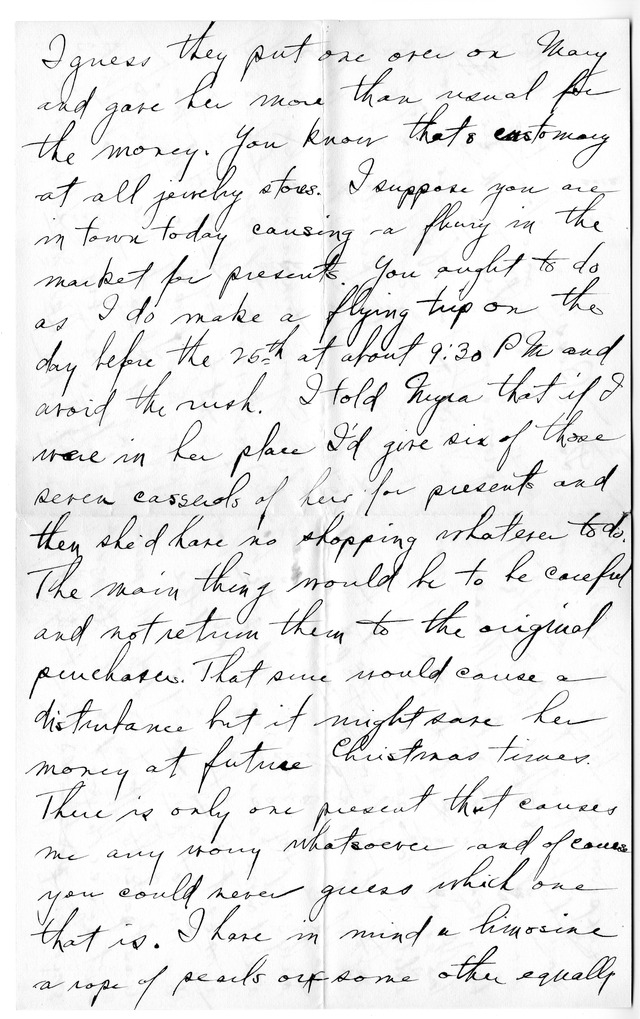 I guess they put one over on Mary
and gave her more than usual for
the money. You know that's customary
at all jewelry stores. I suppose you are
in town today causing a flury in the
market for presents. You ought to do
as I do make a flying trip on the
day before the 25th at about 9:30 PM and
avoid the rush. I told Myra that if I
were in her place I'd give six of those
seven casserols of hers for presents and
then she'd have no shopping whatever to do.
The main thing would be to be careful
and not return them to the original
purchaser. That sure would cause a
disturbance but it might save her
money at future Christmas times.
There is only one present that causes
me any worry whatsoever and of course
you could never guess which one
that is. I have in mind a limosine
a rope of pearls or some other equally